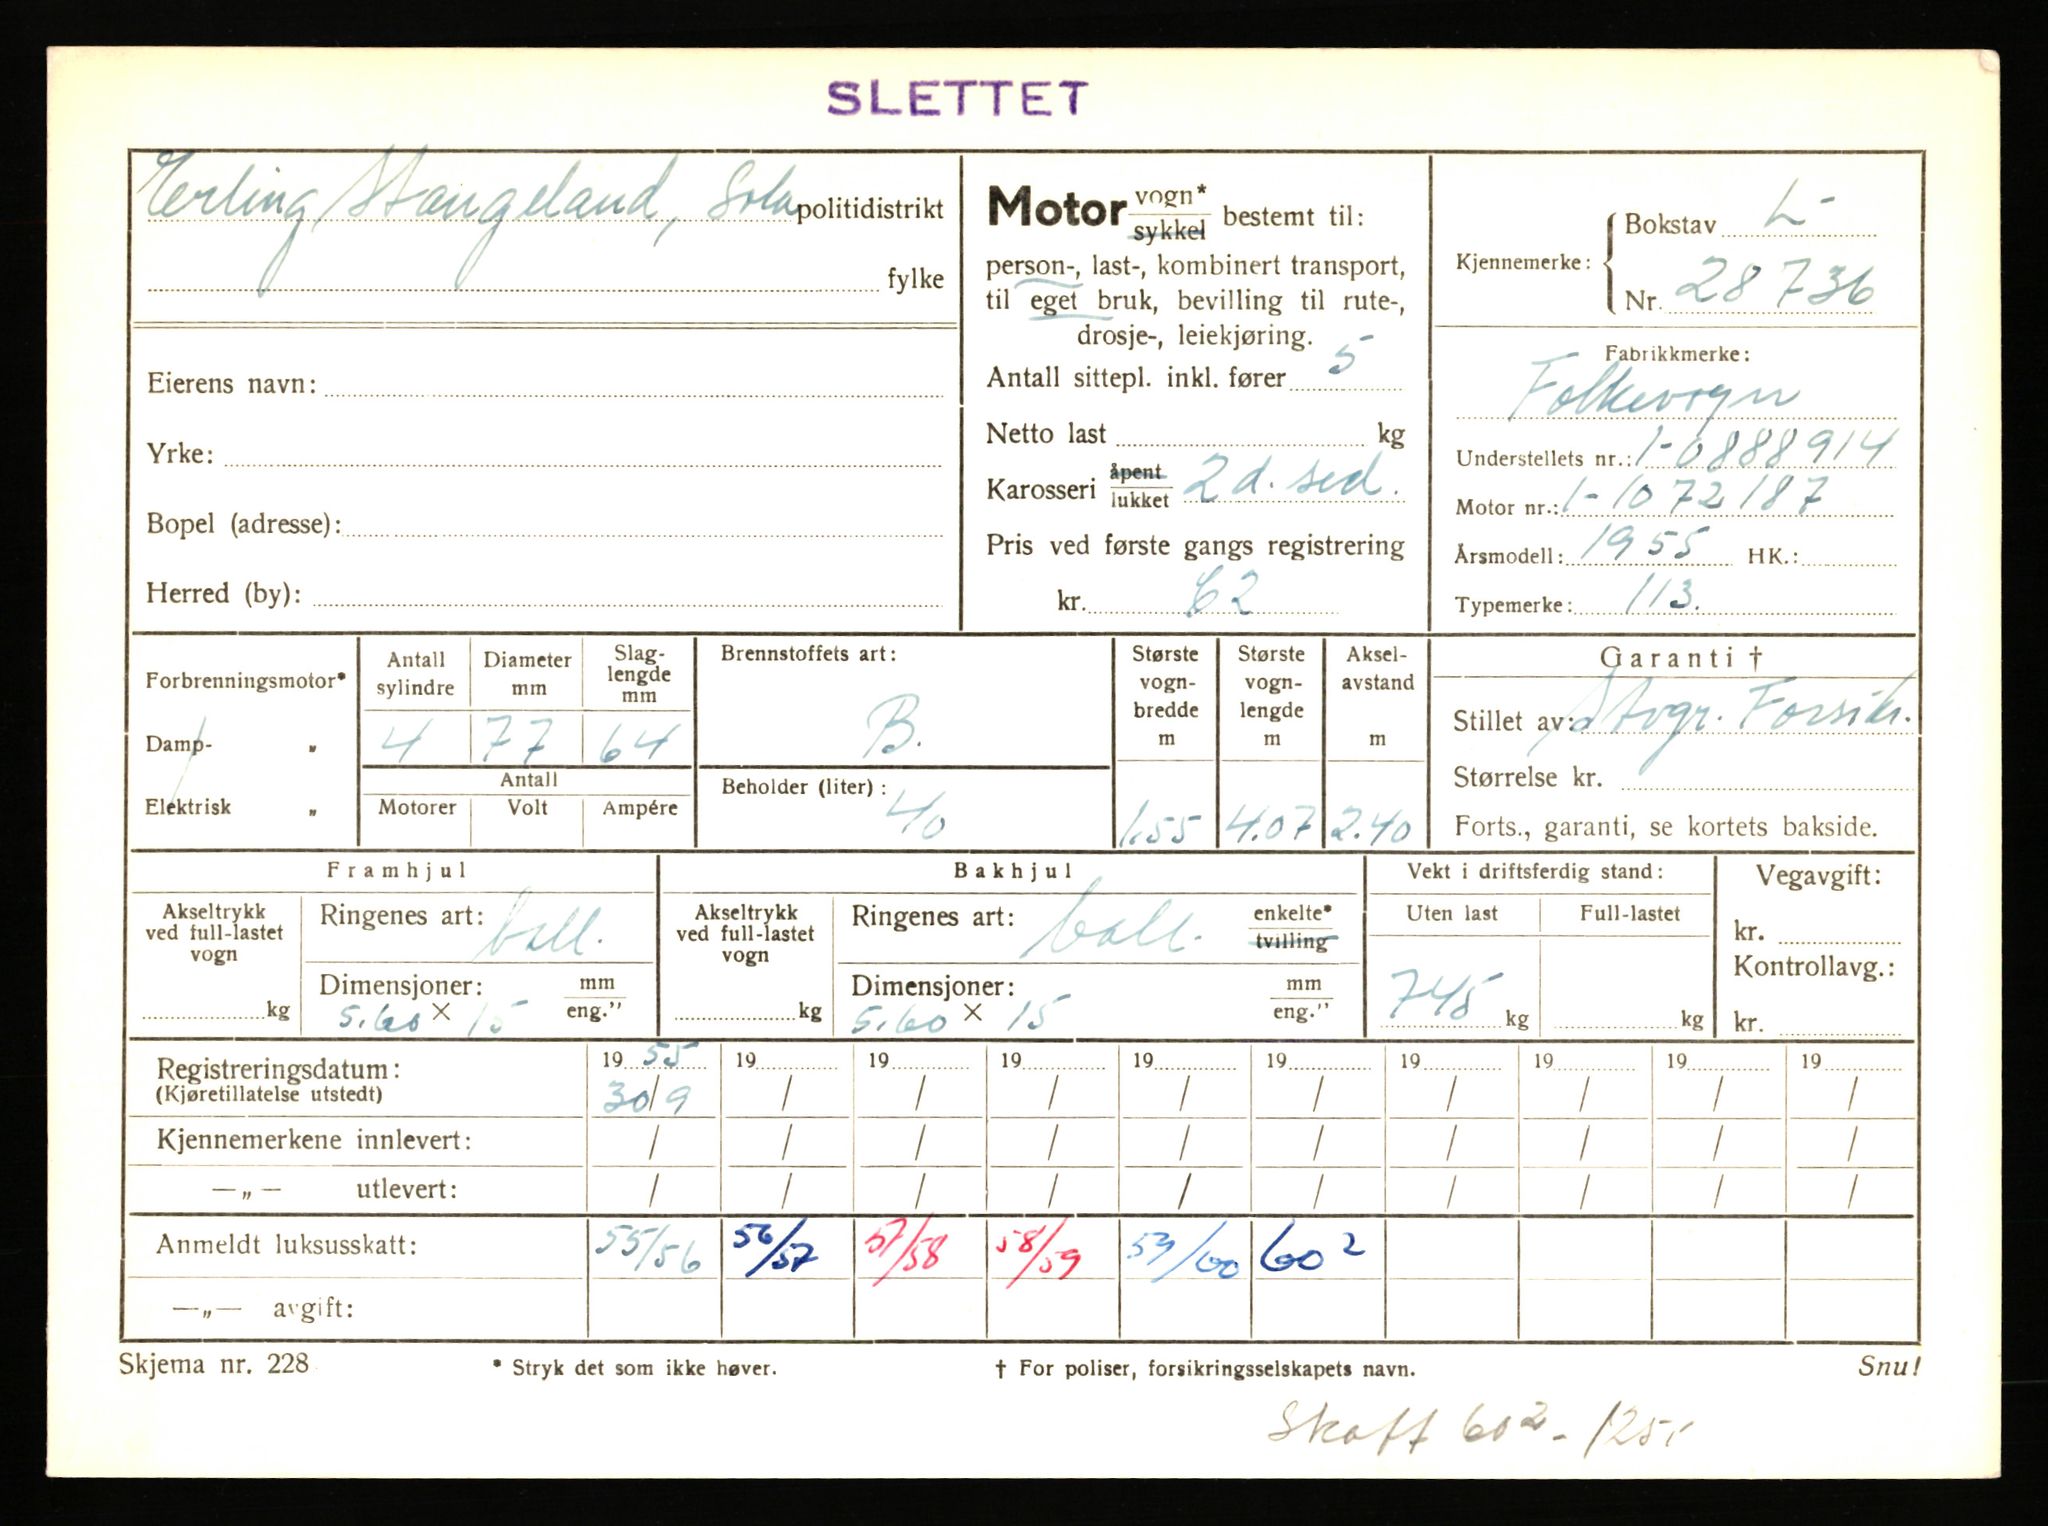 SLETTET
Erling Stangeland, Sola politidistrikt
fylke
Eierens navn:
Yrke:
Bopel (adresse):
Herred (by):
Motor vogn* sykkel bestemt til:
person-, last-, kombinert transport,
til eget bruk, bevilling til rute-,
drosje-, leiekjøring.
Antall sittepl. inkl. fører 5
Netto last kg
Karosseri åpent lukket 2 d. sed.
Pris ved første gangs registrering
kr. 62
Kjennemerke: Bokstav L-
Nr. 28736
Fabrikkmerke:
Folkevogn
Understellets nr.: 1-0888914
Motor nr.: 1-1072187
Årsmodell: 1955 HK.:
Typemerke: 113.
Forbrenningsmotor*
Damp- „
Elektrisk „
Antall sylindre 4
Diameter mm 77
Slag-lengde mm 64
Antall
Motorer Volt Ampére
Brennstoffets art:
B.
Beholder (liter):
40
Største vogn-bredde m 1.55
Største vogn-lengde m 4.07
Aksel-avstand m 2.40
Garanti †
Stillet av: Stvgr. Forsikr.
Størrelse kr.
Forts., garanti, se kortets bakside.
Framhjul
Akseltrykk ved full-lastet vogn kg
Ringenes art: ball.
Dimensjoner: mm eng."
5.60 × 15
Bakhjul
Akseltrykk ved full-lastet vogn kg
Ringenes art: ball. enkelte* tvilling
Dimensjoner: mm eng."
5.60 × 15
Vekt i driftsferdig stand:
Uten last Full-lastet
745 kg kg
Vegavgift:
kr.
Kontrollavg.:
kr.
Registreringsdatum: 19 55 19 19 19 19 19 19 19 19 19
(Kjøretillatelse utstedt) 30/9 / / / / / / / / /
Kjennemerkene innlevert: / / / / / / / / / /
—„— utlevert: / / / / / / / / / /
Anmeldt luksusskatt: 55/56 56/57 57/58 58/59 59/60 60²
—„— avgift:
Skjema nr. 228 * Stryk det som ikke høver. † For poliser, forsikringsselskapets navn. Snu!
Skatt 60² - 125,-